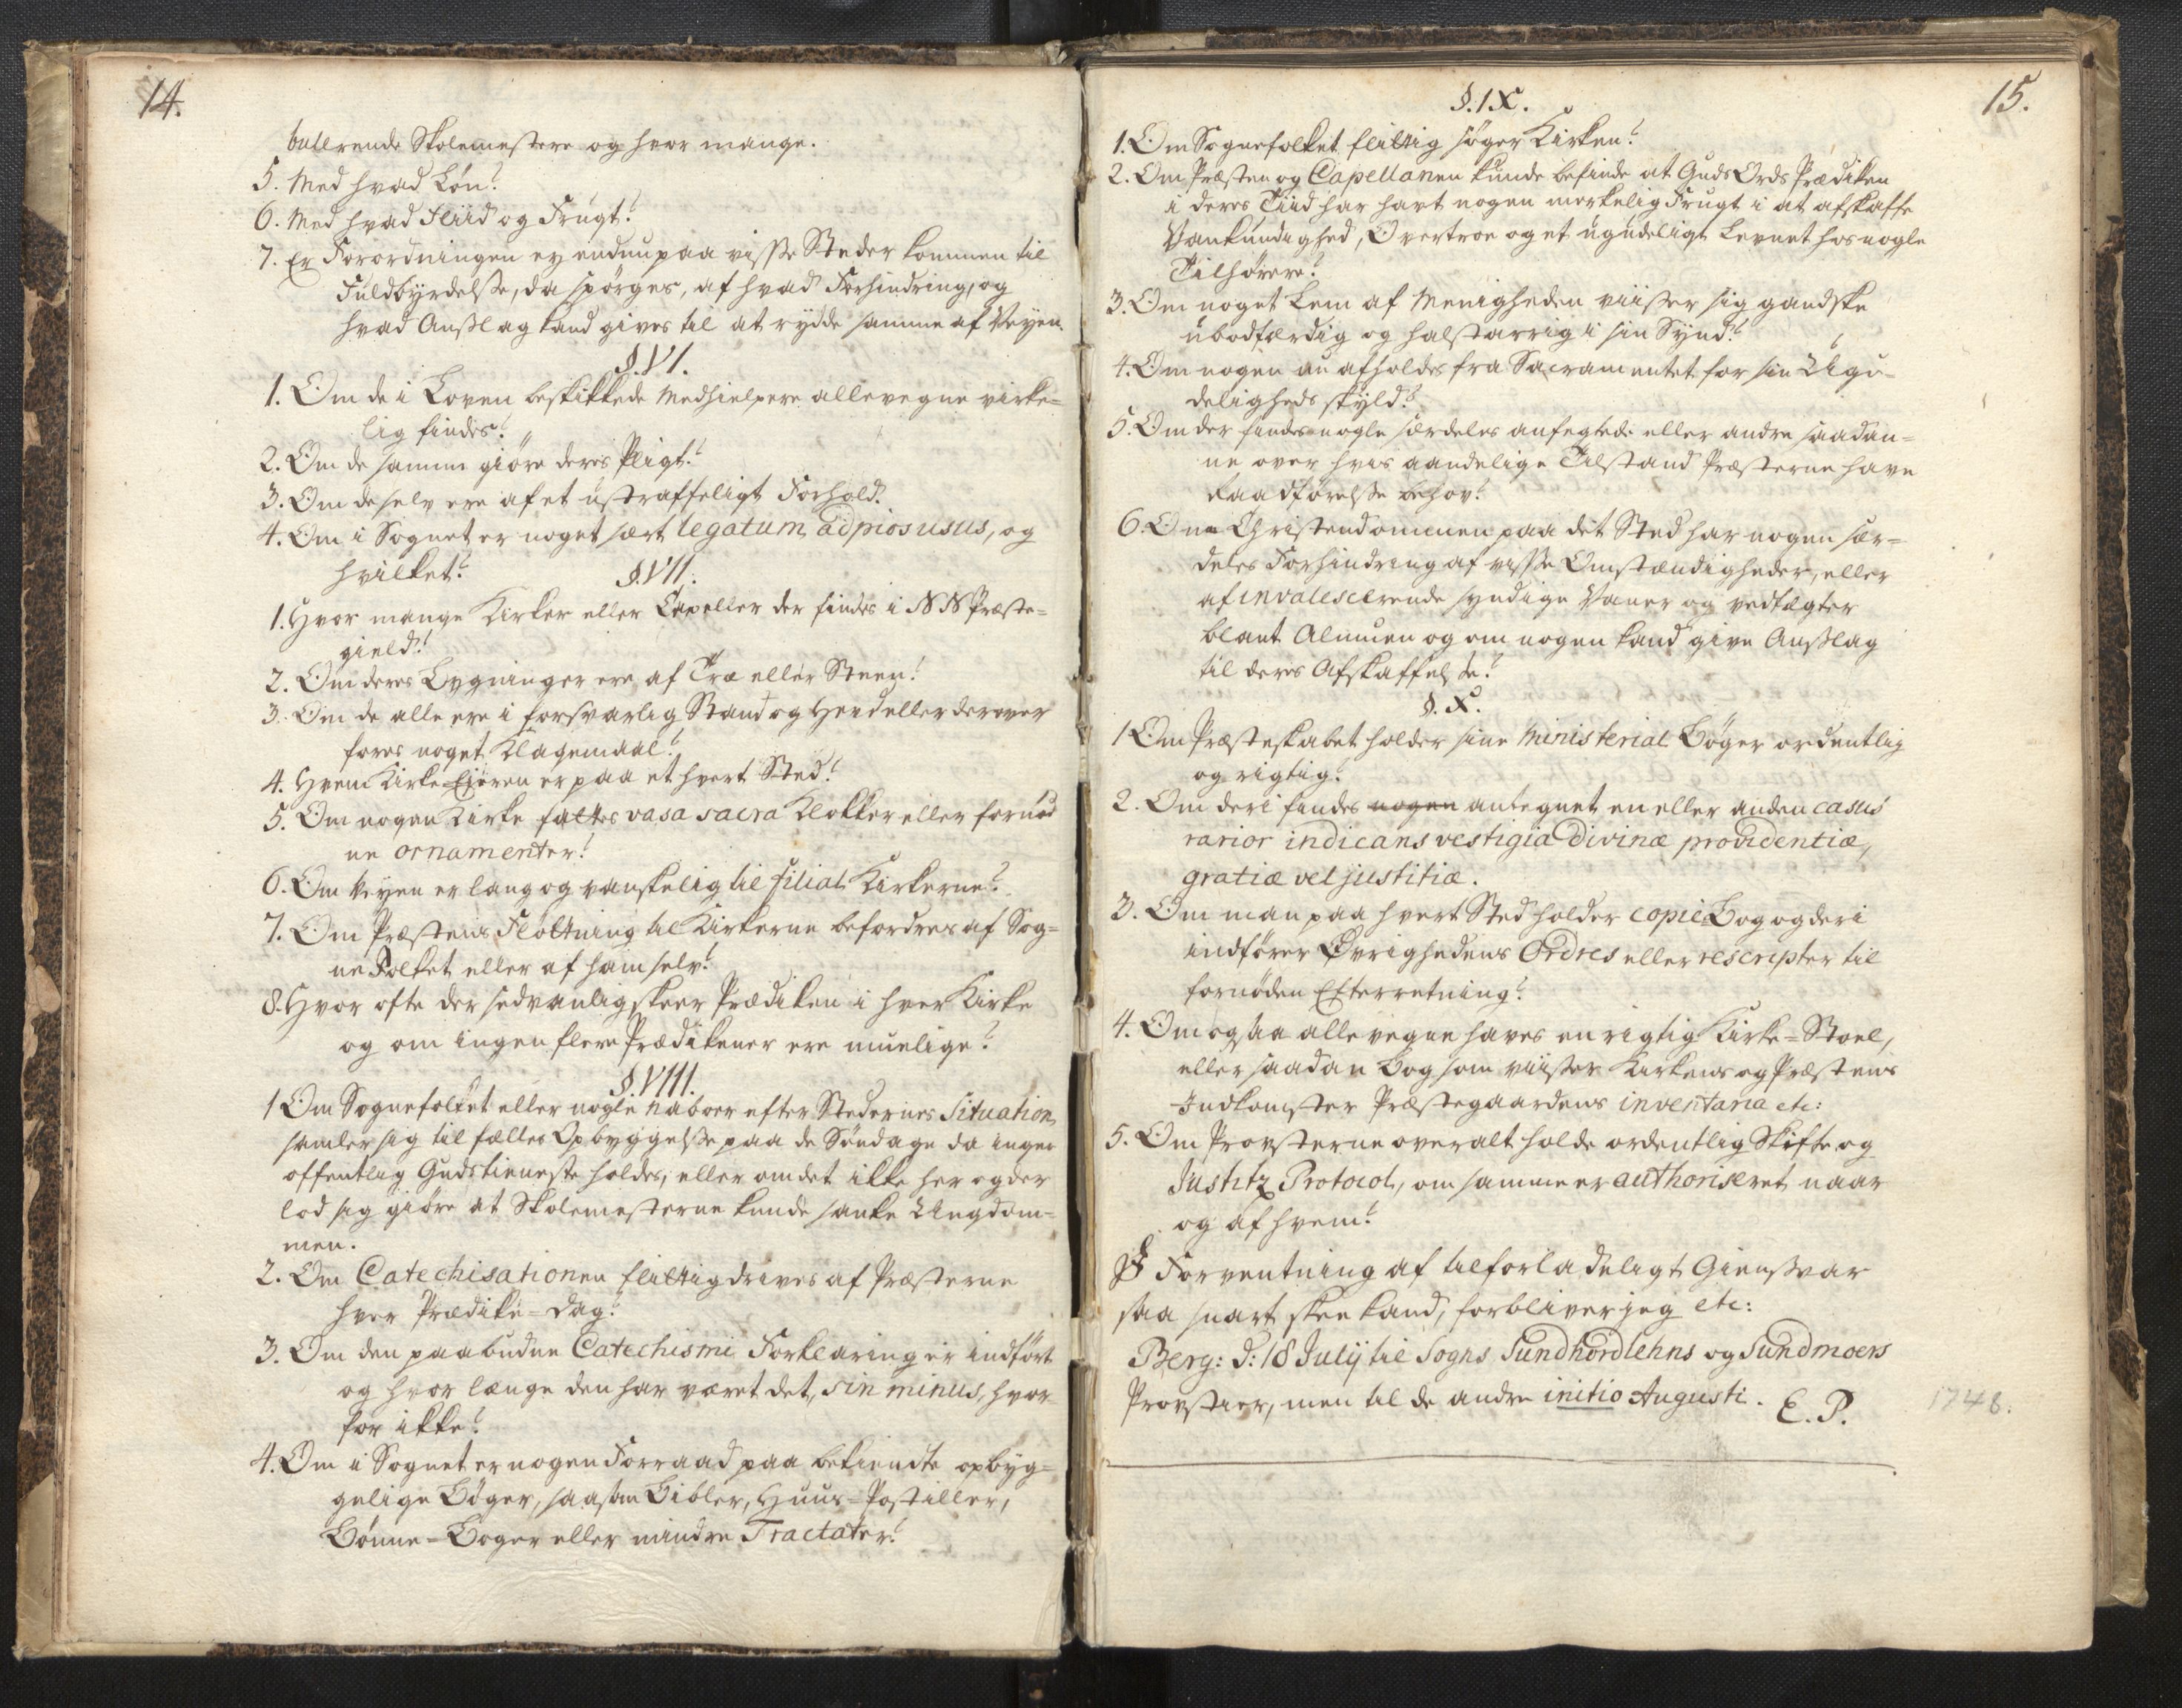 14.
bulerende Skolemestere og hvor mange.
5. Med hvad Løn?
6. Med hvad Fliid og Frugt?
7. Er Forordningen ey endnu paa visse Steder kommen til
Fuldbyrdelsse, da spørges, af hvad Forhindring, og
hvad Anslag kand gives til at rydde samme af Veyen.
§. VI.
1. Om de i Loven beskikkede Medhielpere allevegne virke=
lig findes?
2. Om de samme giøre deres Pligt?
3. Om de selv ere af et ustraffeligt Forhold?
4. Om i Sognet er noget sært legatum ad pios usus, og
hvilket?
§. VII.
1. Hvor mange Kirker eller Capeller der findes i N N Præste=
gield?
2. Om deres Bygninger ere af Træ eller Steen?
3. Om de alle ere i forsvarlig Stand og Hevd eller derover
føres noget Klagemaal?
4. Hvem Kirke Ejeren er paa et hvert Sted?
5. Om nogen Kirke fattes vasa sacra Klokker eller fornød
ne ornamenter?
6. Om Veyen er lang og vanskelig til filial Kirkerne?
7. Om Præstens Fløttning til Kirkerne befordres af Sog=
ne Folket eller af ham selv?
8. Hvor ofte der sedvanlig skeer Prædiken i hver Kirke
og om ingen flere Prædikener ere muelige?
§. VIII.
1 Om Sognefolket eller nogle Naboer efter Stedernes Situation
samler sig til fælles Opbyggelsse paa de Søndage da ingen
offentlig Gudstieneste holdes, eller om det ikke her og der
lod sig giøre at Skolemesterne kunde sanke Ungdom=
men.
2. Om Catechisationen flittig drives af Præsterne
hver Prædike=Dag?
3. Om den paabudne Catechismi Forklaring er indført
og hvor længe den har været det, sin minus, hvor
for ikke?
4. Om i Sognet er nogen Forraad paa bekiendte opbyg=
gelige Bøger, saasom Bibler, Huus=Postiller,
Bønne=Bøger eller mindre Tractater?
15.
§. IX.
1. Om Sognefolket flittig søger Kirken?
2. Om Præsten og Capellanen kunde befinde at Guds Ords Prædiken
i deres Tiid har havt nogen merkelig Frugt i at afskaffe
Vankundighed, Overtroe og et ugudeligt Levnet hos nogle
Tilhørere?
3. Om noget Lem af Menigheden viisser sig gandske
ubodfærdig og halstarrig i sin Synd?
4. Om nogen nu afholdes fra Sacramentet for sin Ugu=
deligheds skyld?
5. Om der findes nogle særdeles anfegtede eller andre saadan=
ne over hvis aandelige Tilstand Præsterne have
Raadførelsse behov?
6. Om Christendommen paa det Sted har nogen sær=
deles Forhindring af visse Omstændigheder, eller
af invalescerende syndige Vaner og vedtægter
blant Almuen og om nogen kand give Anslag
til deres Afskaffelse?
§. X.
1 Om Præsteskabet holder sine Ministerial Bøger ordentlig
og rigtig?
2. Om deri findes nogen antegnet en eller anden casus
rarior indicans vestigia Divinæ providentiæ,
gratiæ vel justitiæ.
3. Om man paa hvert Sted holder copie Bog og deri
indfører Øvrighedens Ordres eller rescripter til
fornøden Efterretning?
4. Om ogsaa allevegne haves en rigtig Kirke=Stoel,
eller saadan Bog som viisser Kirkens og Præstens
Indkomster Præstegaardens inventaria etc:
5. Om Provsterne overalt holde ordentlig Skifte og
Justitz Protocol, om samme er authoriseret naar
og af hvem?
J Forventning af tilforladeligt Giensvar
saa snart skee kand, forbliver jeg etc:
Berg: d: 18 Julij til Sogns Sundhordlehns og Sundmoers
Provstier, men til de andre initio Augusti. E. P.
1748.